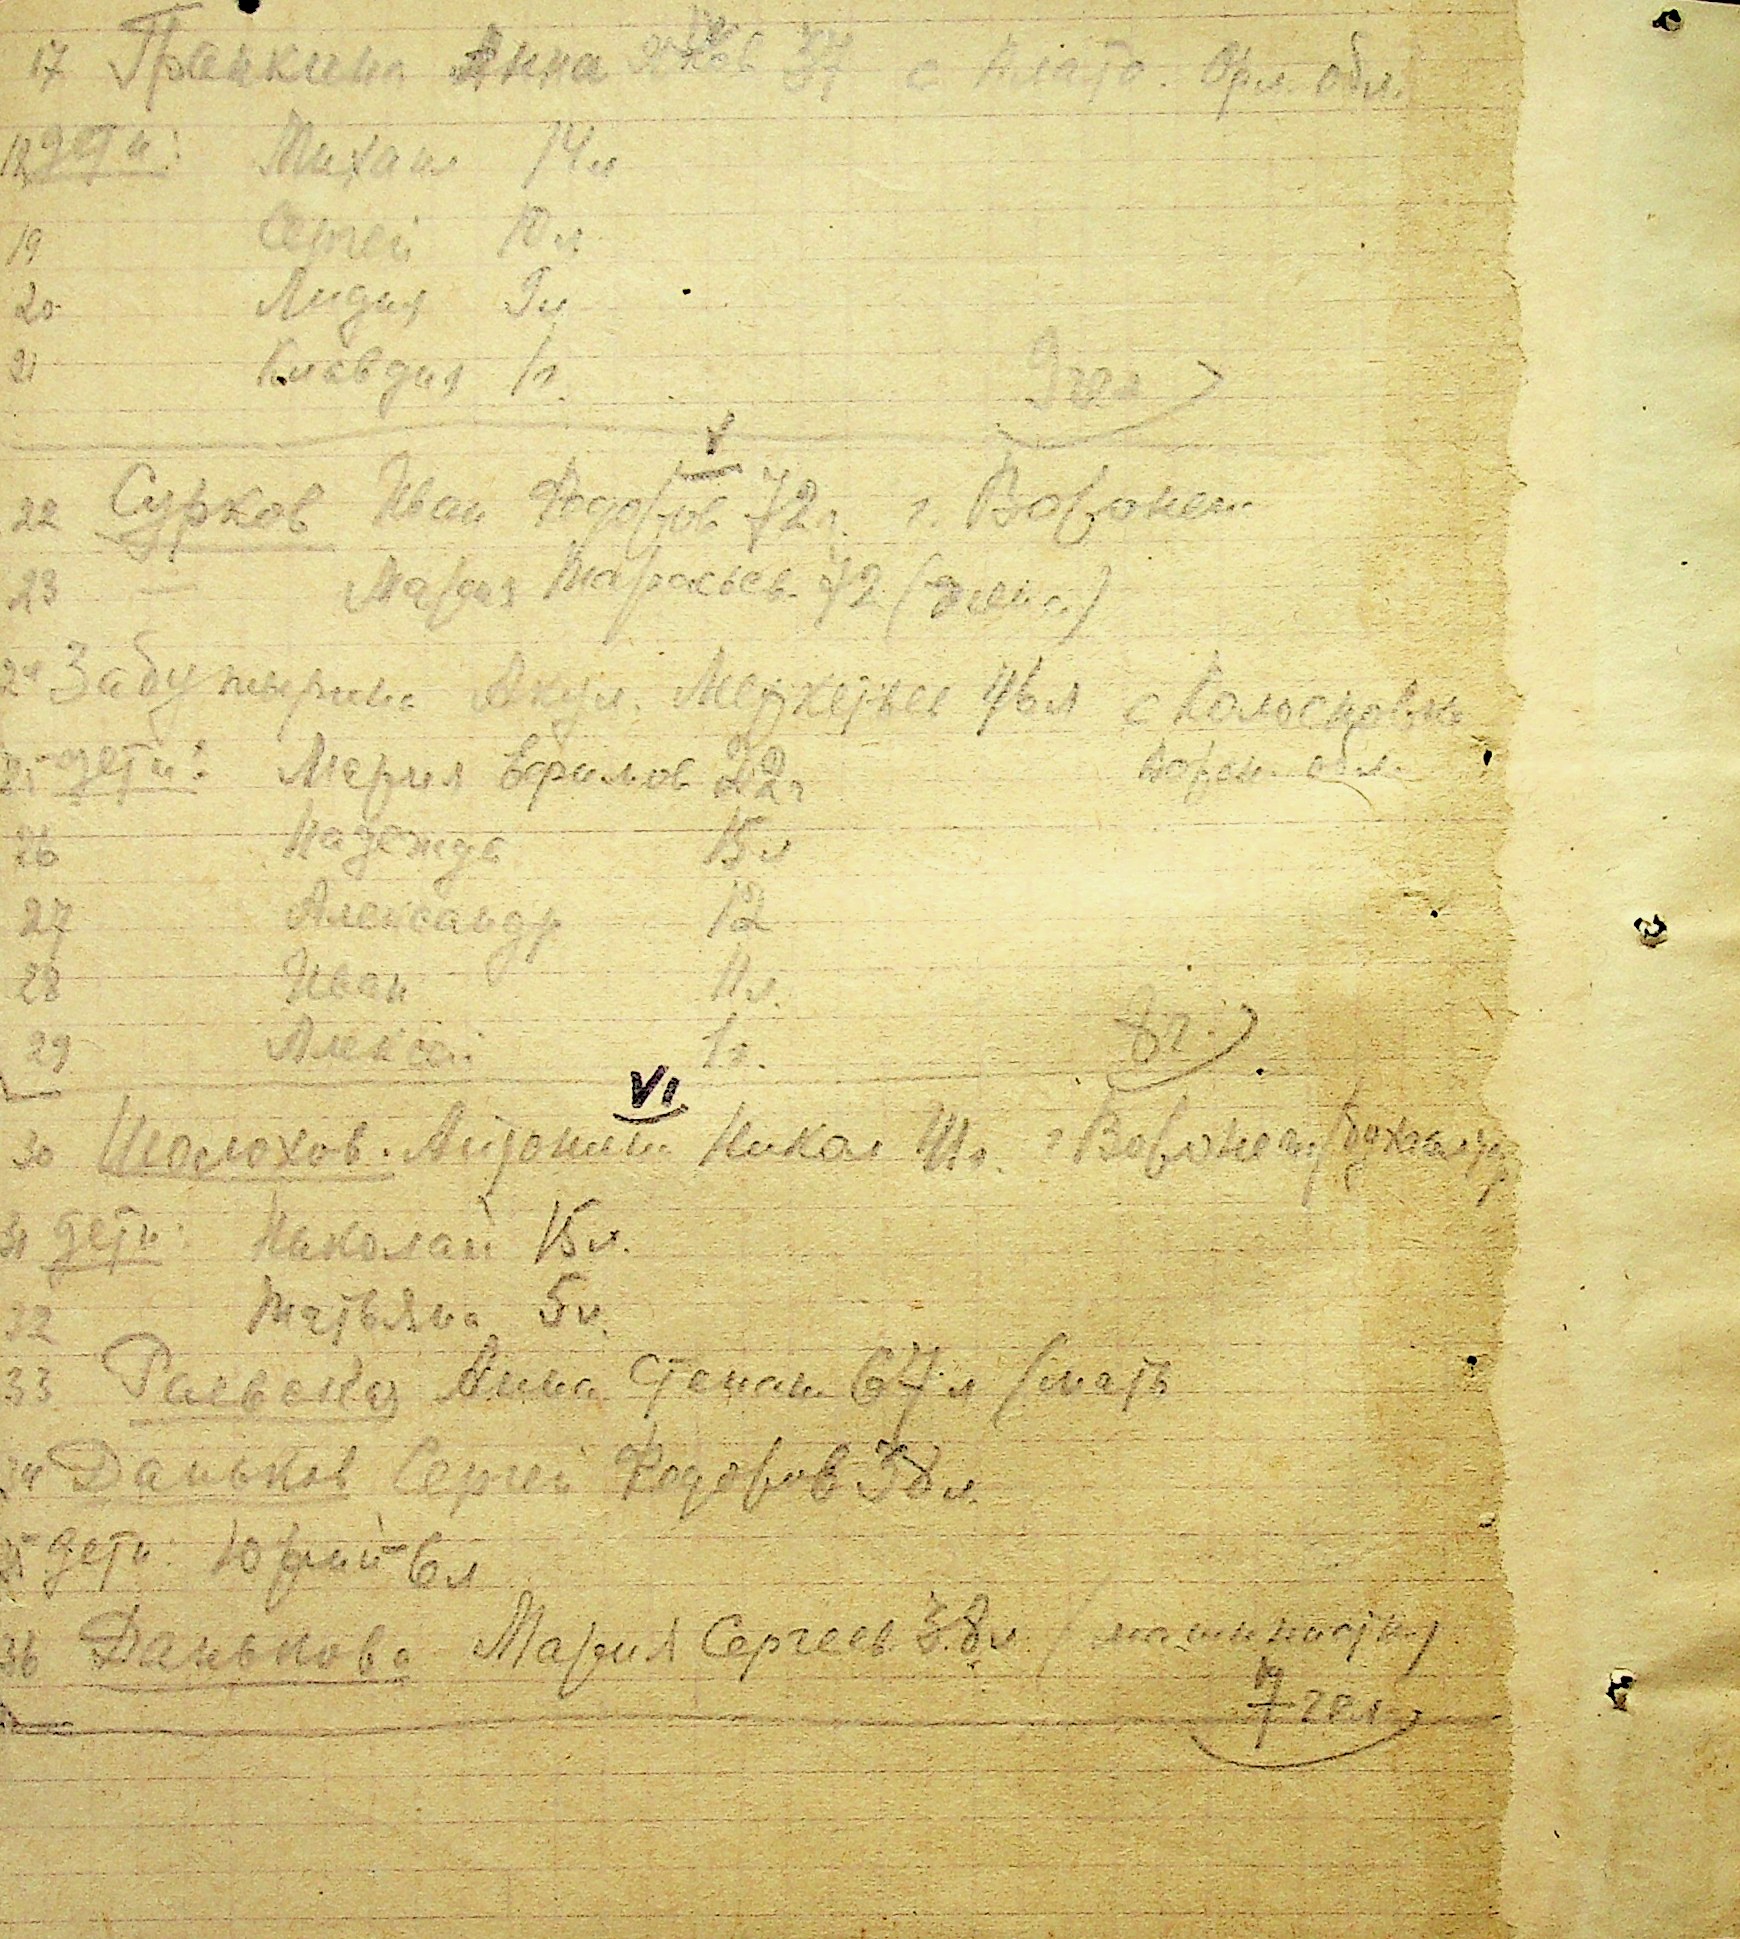 17 Гранкина Анна Яков 37 с Плато. Орл. обл.
18 дети: Михаил 14 л
19 Сергей 10 л
20 Лидия 9 л
21 Клавдия 1 г.
9 чел
V
22 Сурков Иван Федоров 72 г. г. Воронеж
23 — Мария Тарасьев. 72 (жена)
24 Акул. 46 л с
25 дети: Мария Ефимов 22 г
Ворон. обл.
26 Надежда 15 л
27 Александр 12
28 Иван 11 л.
29 Алексей 1 г.
8 ч.
VI
30 Шолохов. Никол 41 г. г Воронеж
31 дети: Николай 15 л.
32 Татьяна 5 л.
33 Раевская Анна Степан. 67 л (мать
34 Даньков Сергей Федоров 38 л.
35 дети: Юрий 6 л
36 Данькова Мария Сергеев 38 л (машинистк)
7 чел